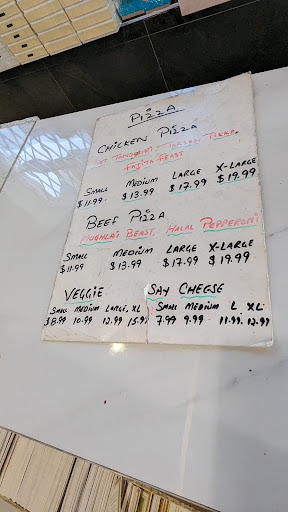 PizzA
CHICKEN PizzA
TANDOORI - TARZAN TIKKA
FAJITA FEAST
SMALL MEDIUM LARGE X-LARGE
$11.99 $13.99 $17.99 $19.99
BEEF PizzA
MUGHLAI BEAST, HALAL PEPPERONI
SMALL MEDIUM LARGE X-LARGE
$11.99 $13.99 $17.99 $19.99
VEGGIE SAY CHEESE
SMALL MEDIUM LARGE, XL SMALL MEDIUM L XL
$8.99 10.99 12.99 15.99 7.99 9.99 11.99 12.99